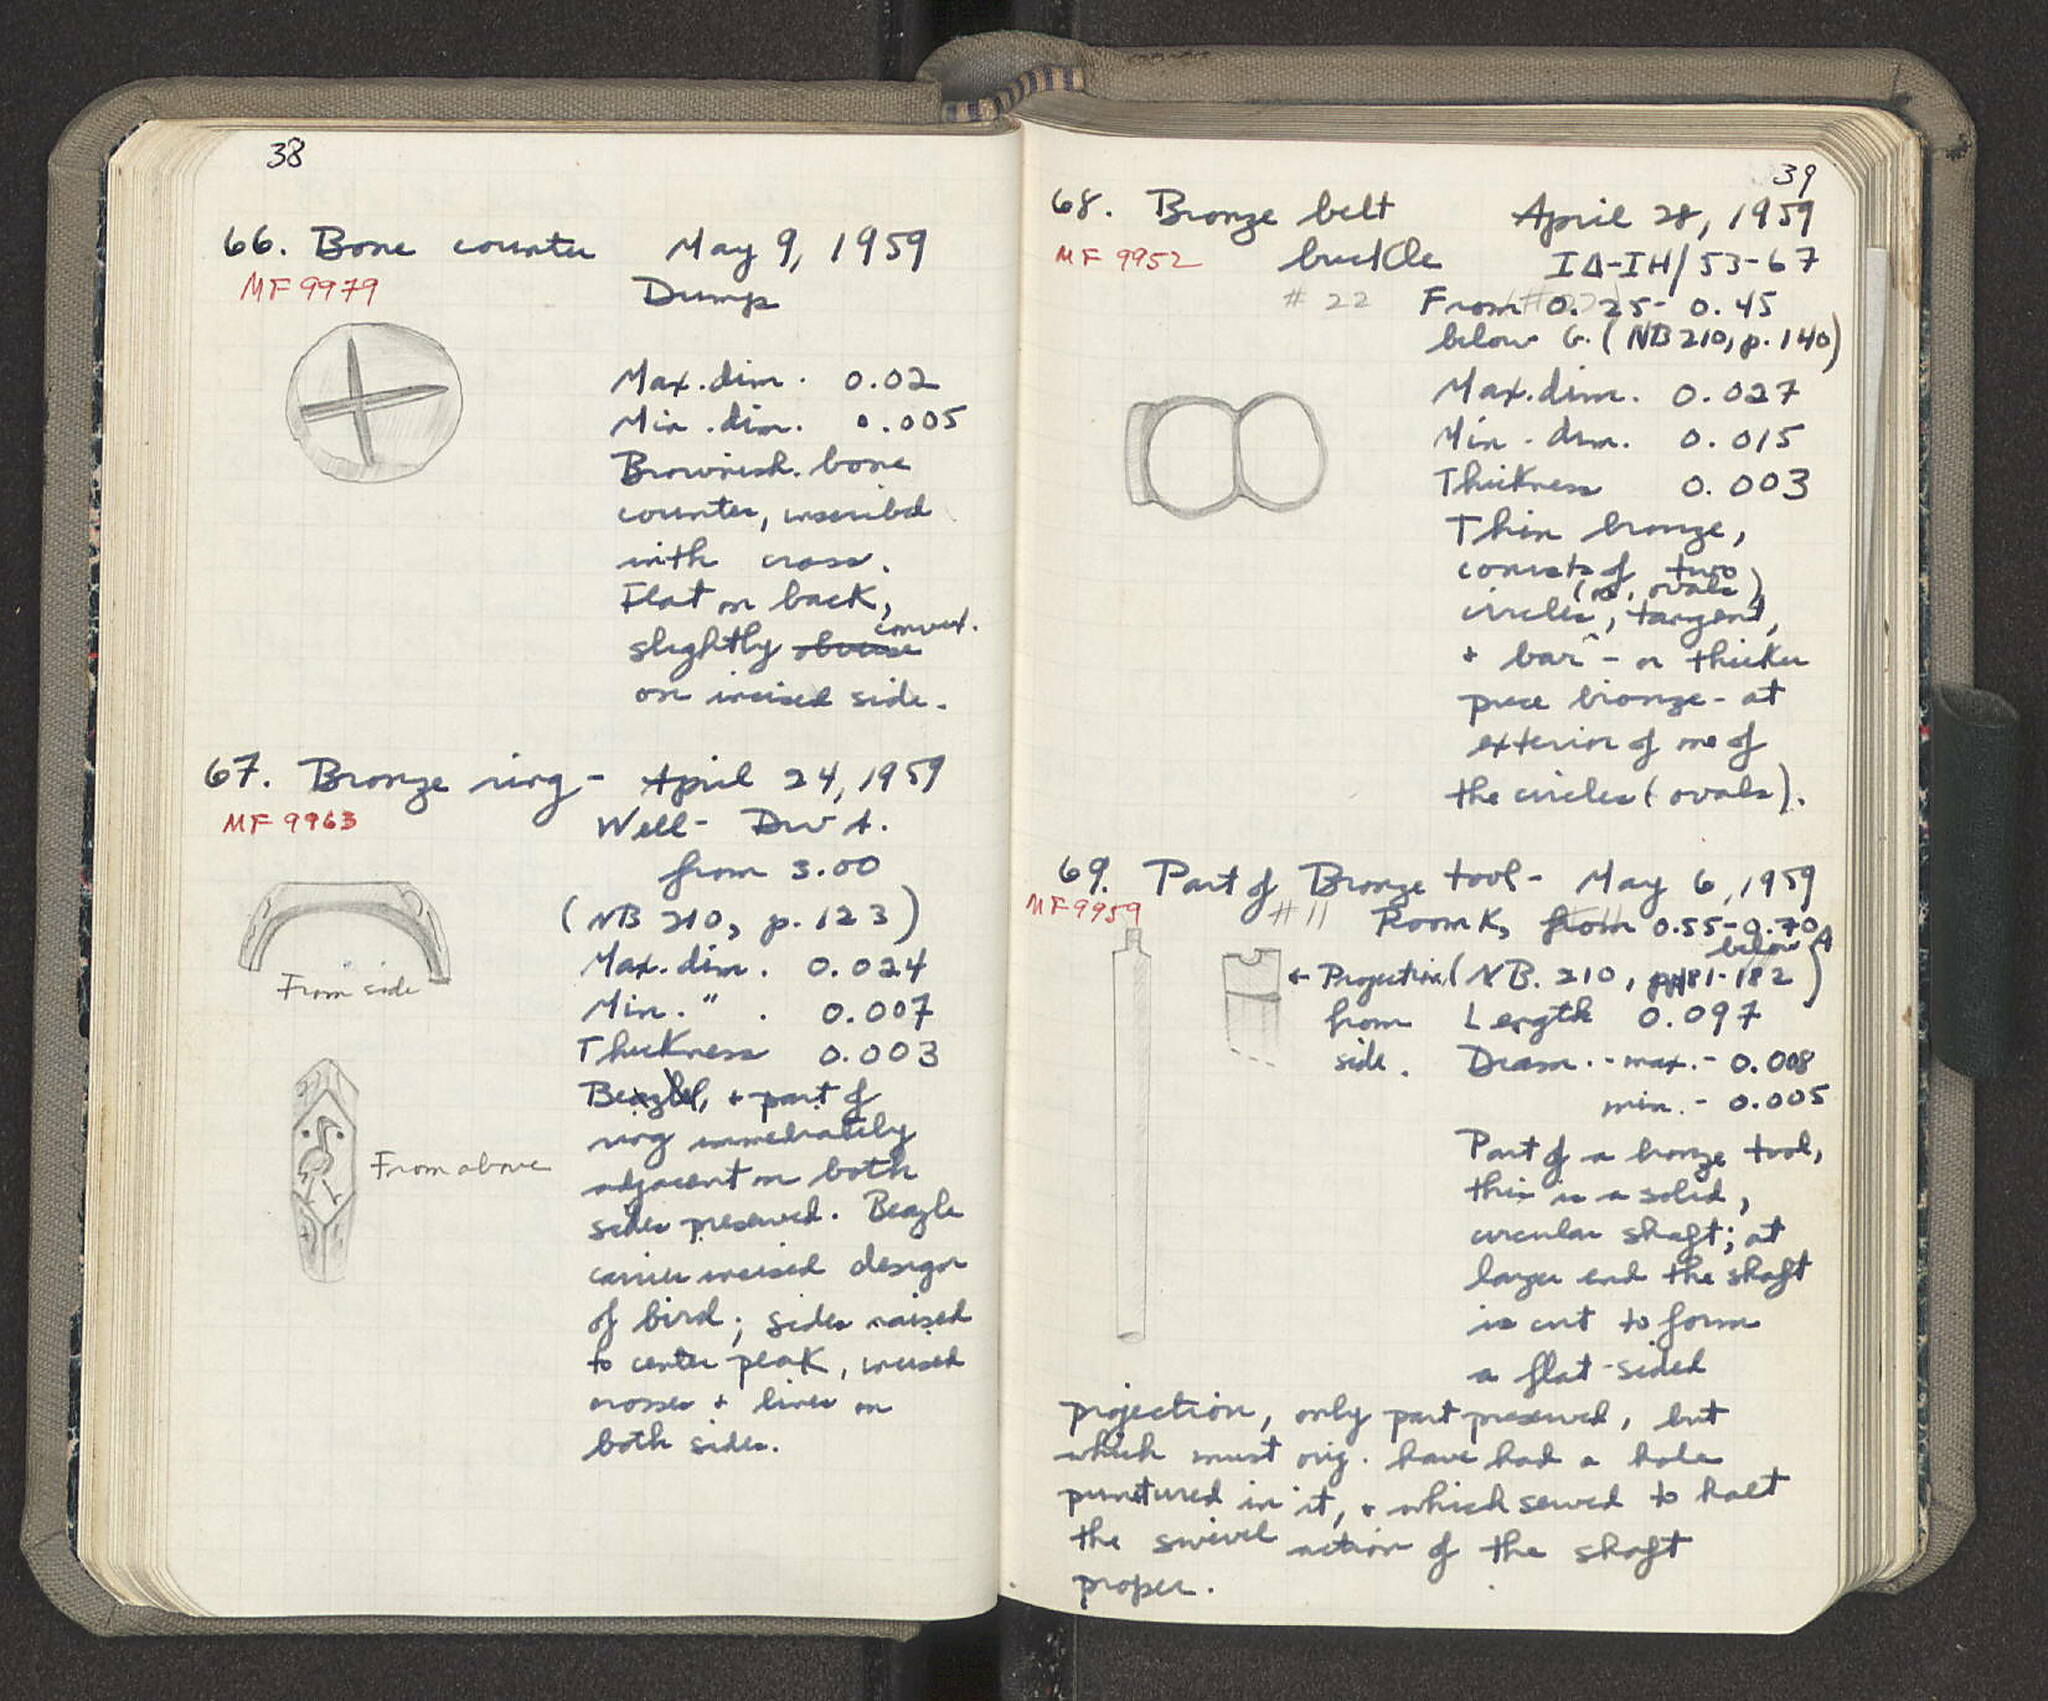 38
66. Bone counter May 9, 1959
MF 9979
Dump
Max. dim. 0.02
Min. dim. 0.005
Brownish bone
counter, inscribed
with cross.
Flat on back,
slightly obverse convex.
on incised side.
67. Bronze ring - April 24, 1959
MF 9963
Well - Dw A.
from 3.00
(NB 210, p. 123)
From side
Max. dim. 0.024
Min. " . 0.007
Thickness 0.003
Beazle, + part of
ring immediately
From above
adjacent on both
sides preserved. Beazle
carries incised design
of bird; sides raised
to center peak, incised
crosses + lines on
both sides.
39
68. Bronze belt April 28, 1959
MF 9952 buckle ΙΔ-ΙΗ/53-67
# 22 From 0.25- 0.45
below G. (NB 210, p. 140)
Max. dim. 0.027
Min. dim. 0.015
Thickness 0.003
Thin bronze,
consists of two
(or, ovals)
circles, tangent,
+ bar - or thicker
piece bronze - at
exterior of one of
the circles (ovals).
69. Part of Bronze tool - May 6, 1959
MF 9959 # 11 Room K, from 0.55-0.70
below A
← Projection (NB. 210, pp 181-182)
from Length 0.097
side. Diam. - max. - 0.008
min. - 0.005
Part of a bronze tool,
this is a solid,
circular shaft; at
larger end the shaft
is cut to form
a flat-sided
projection, only part preserved, but
which must orig. have had a hole
punctured in it, + which served to halt
the swivel action of the shaft
proper.